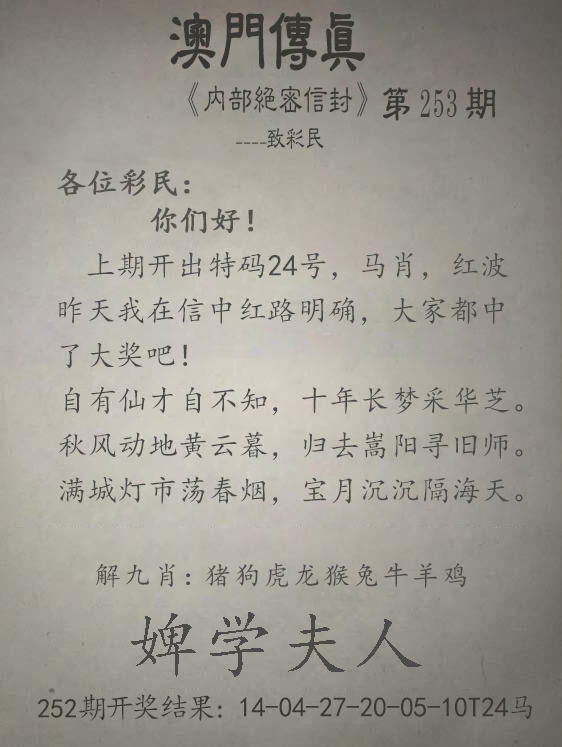 澳門傳眞
《內部絕密信封》第 253 期
----致彩民
各位彩民：
你们好！
上期开出特码24号，马肖，红波
昨天我在信中红路明确，大家都中
了大奖吧！
自有仙才自不知，十年长梦采华芝。
秋风动地黄云暮，归去嵩阳寻旧师。
满城灯市荡春烟，宝月沉沉隔海天。
解九肖：猪狗虎龙猴兔牛羊鸡
婢学夫人
252期开奖结果：14-04-27-20-05-10T24马